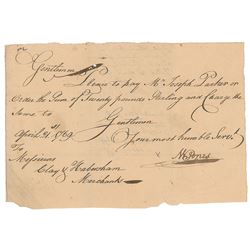 Gentlemen
Please to pay Mr Joseph Parker or
Order the Sum of Twenty pounds Sterling and Charge the
Same to
Gentlemen
April 21st 1769
Your most humble Servt
To
N Jones
Messieurs
Clay & Habersham
Merchants